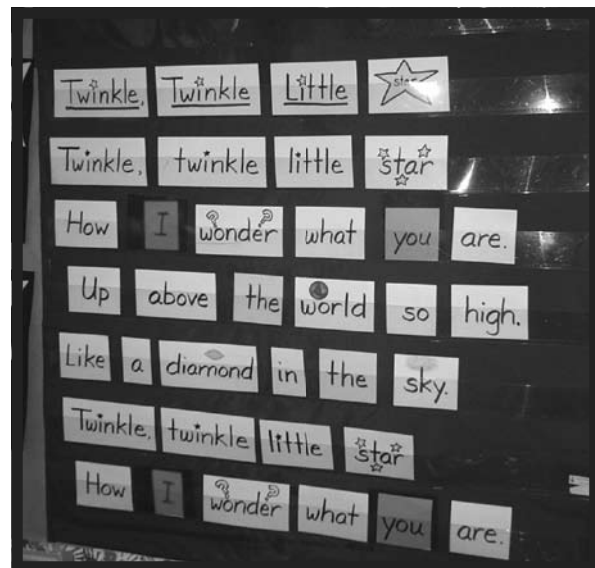 Twinkle, Twinkle Little star
Twinkle, twinkle little star
How I wonder what you are.
Up above the world so high.
Like a diamond in the sky.
Twinkle, twinkle little star
How I wonder what you are.